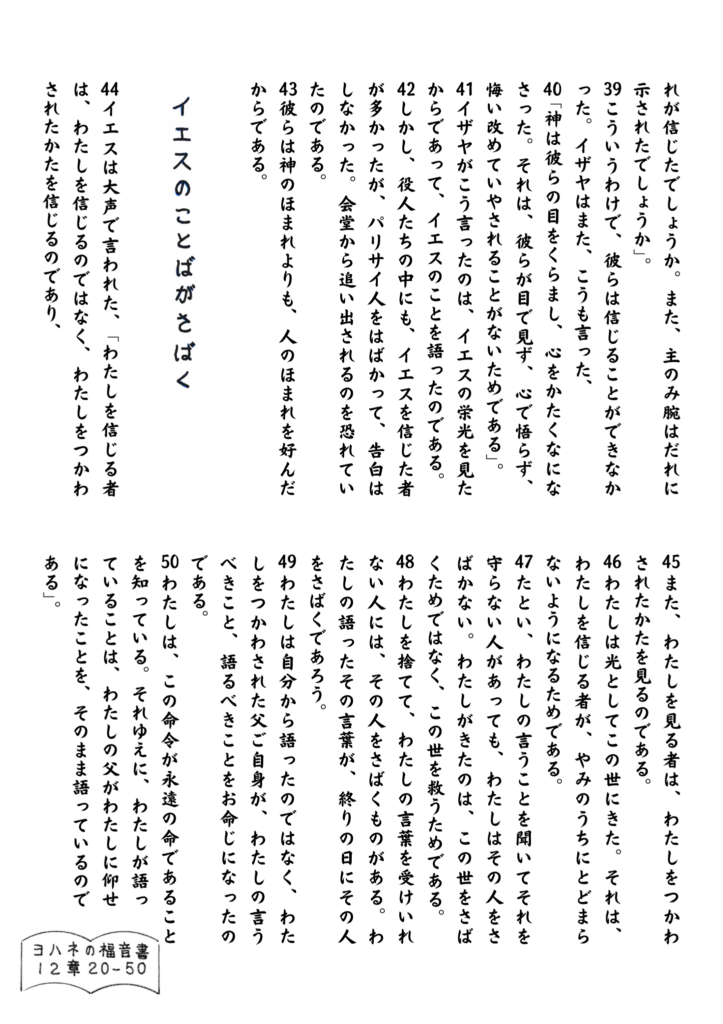 れが信じたでしょうか。また、主のみ腕はだれに
示されたでしょうか」。
39こういうわけで、彼らは信じることができなか
った。イザヤはまた、こうも言った、
40「神は彼らの目をくらまし、心をかたくなにな
さった。それは、彼らが目で見ず、心で悟らず、
悔い改めていやされることがないためである」。
41イザヤがこう言ったのは、イエスの栄光を見た
からであって、イエスのことを語ったのである。
42しかし、役人たちの中にも、イエスを信じた者
が多かったが、パリサイ人をはばかって、告白は
しなかった。会堂から追い出されるのを恐れてい
たのである。
43彼らは神のほまれよりも、人のほまれを好んだ
からである。
イエスのことばがさばく
44イエスは大声で言われた、「わたしを信じる者
は、わたしを信じるのではなく、わたしをつかわ
されたかたを信じるのであり、
45また、わたしを見る者は、わたしをつかわ
されたかたを見るのである。
46わたしは光としてこの世にきた。それは、
わたしを信じる者が、やみのうちにとどまら
ないようになるためである。
47たとい、わたしの言うことを聞いてそれを
守らない人があっても、わたしはその人をさ
ばかない。わたしがきたのは、この世をさば
くためではなく、この世を救うためである。
48わたしを捨てて、わたしの言葉を受けいれ
ない人には、その人をさばくものがある。わ
たしの語ったその言葉が、終りの日にその人
をさばくであろう。
49わたしは自分から語ったのではなく、わた
しをつかわされた父ご自身が、わたしの言う
べきこと、語るべきことをお命じになったの
である。
50わたしは、この命令が永遠の命であること
を知っている。それゆえに、わたしが語っ
ていることは、わたしの父がわたしに仰せ
になったことを、そのまま語っているので
ある」。
ヨハネの福音書
12章20-50